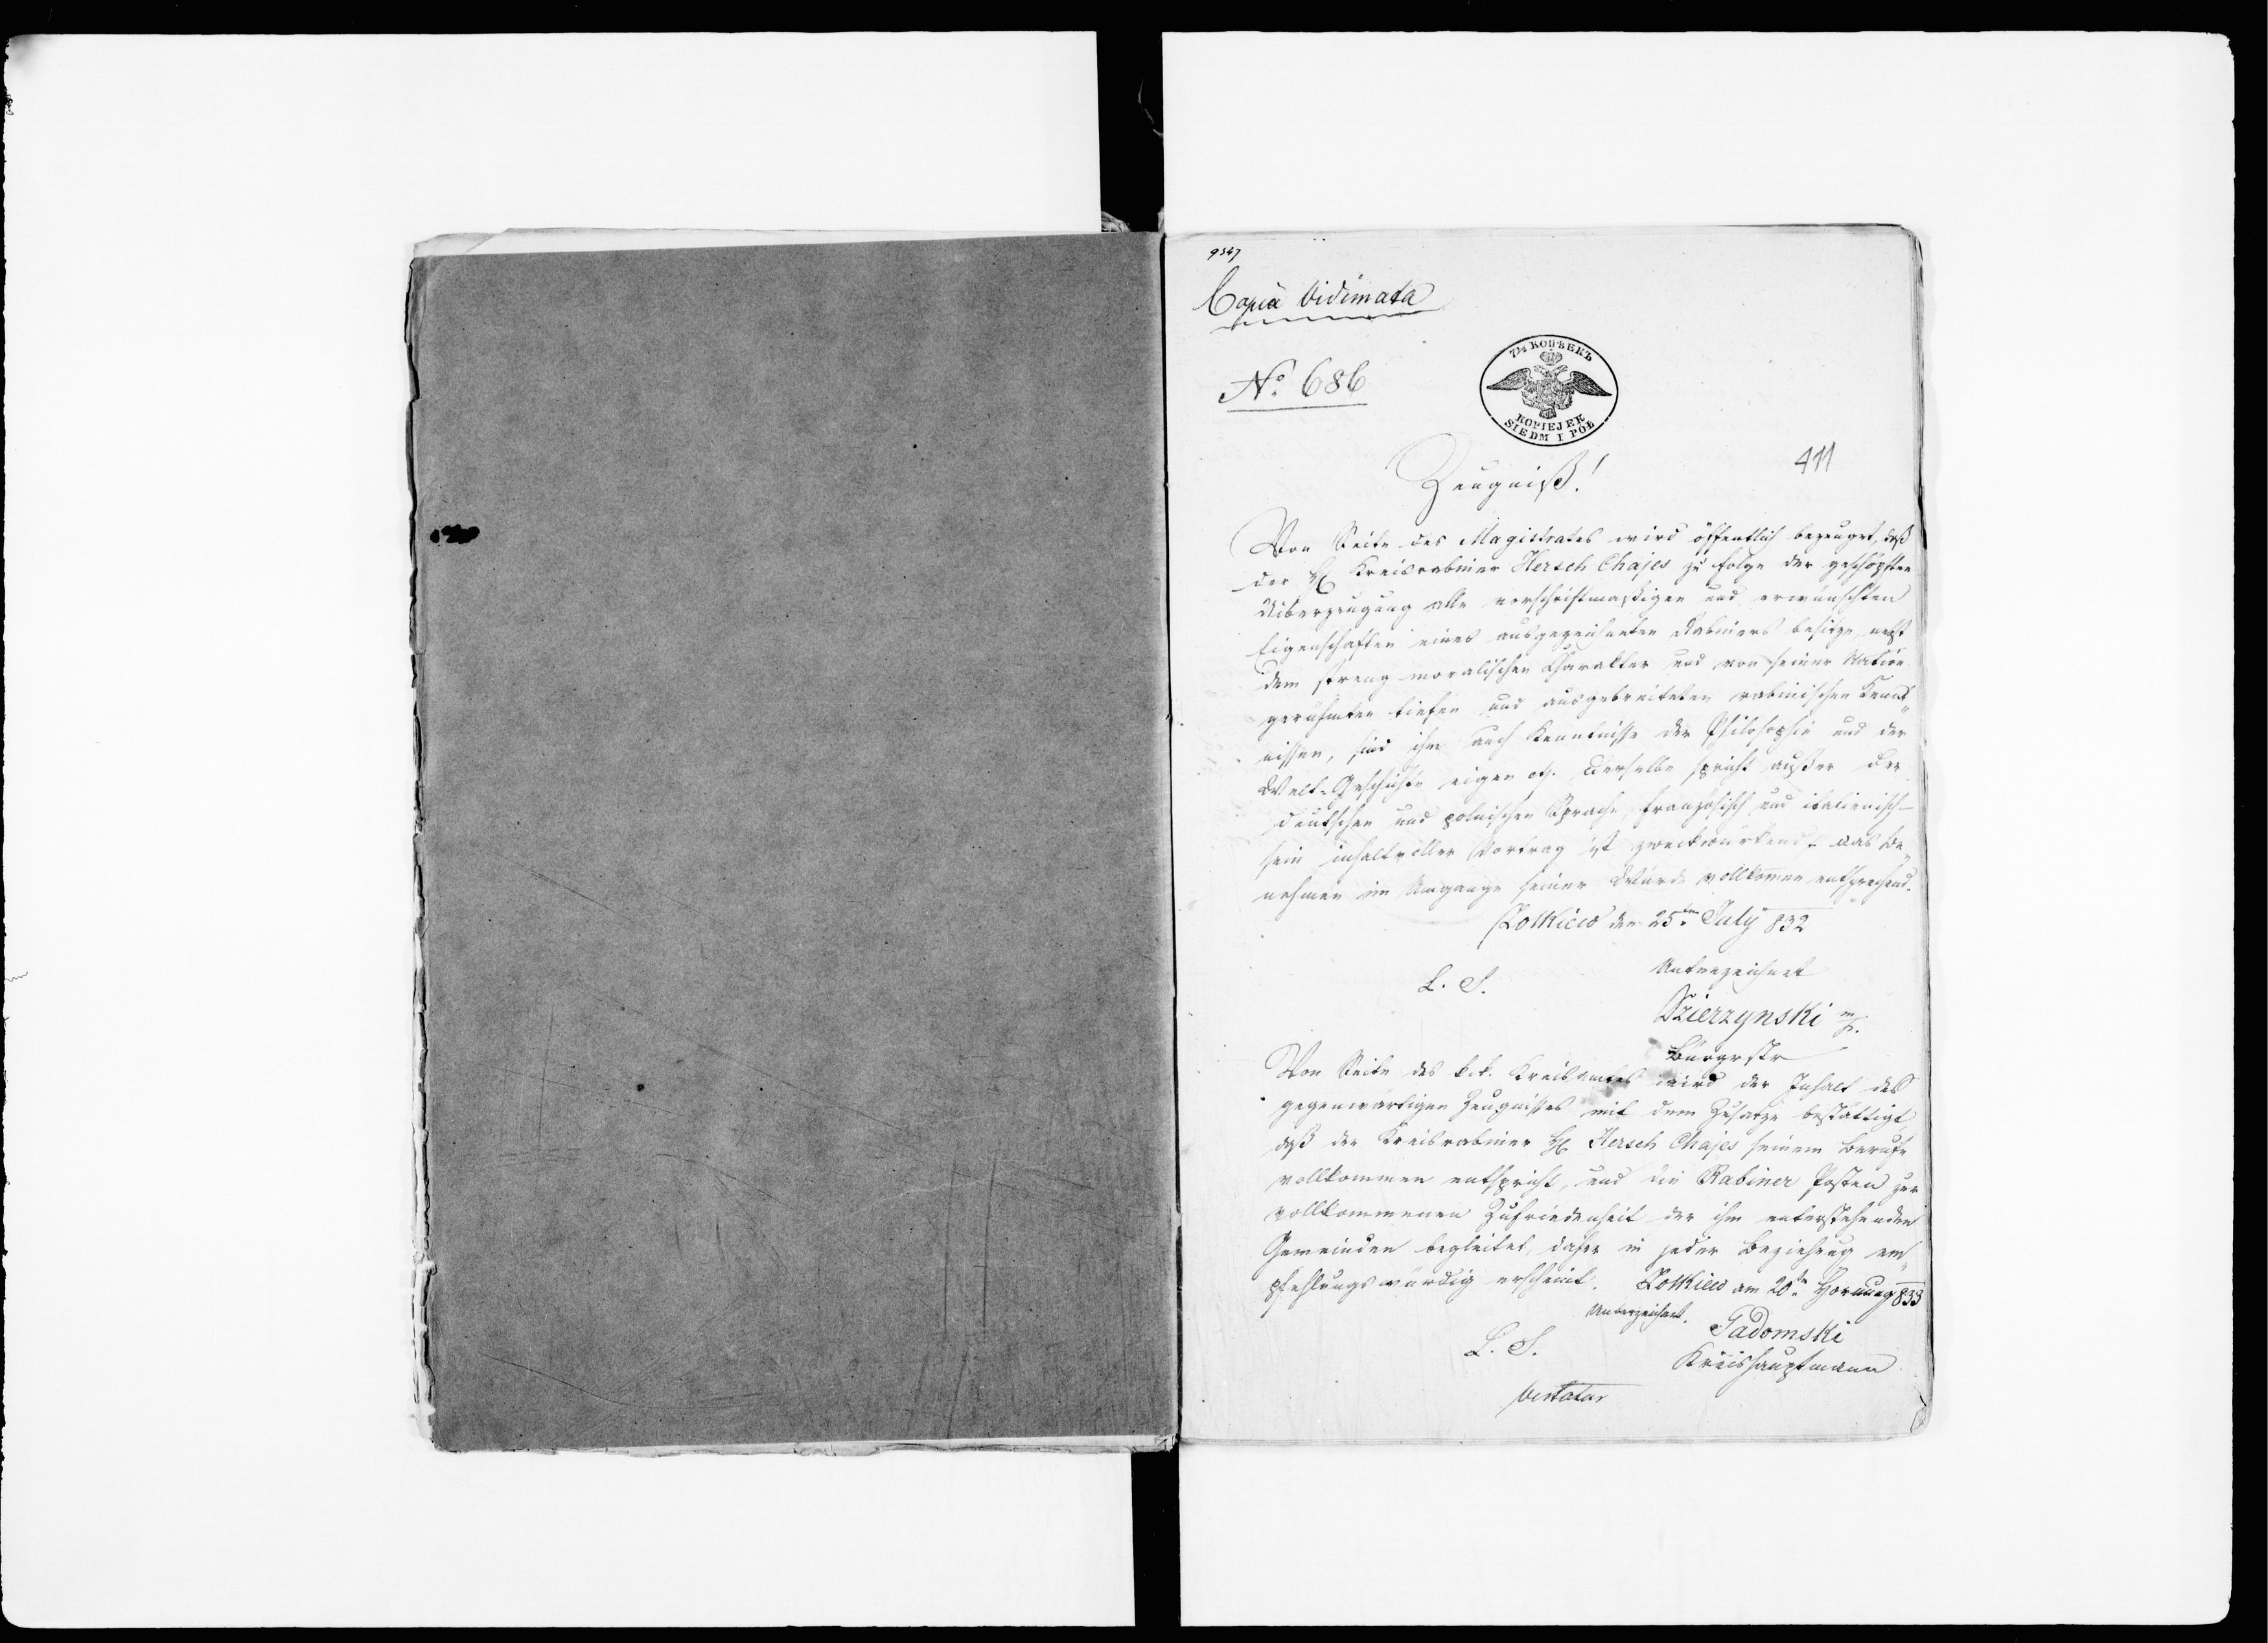 9347
Copia Vidimata
7½ КОПѢЕКЪ
KOPIEJEK
SIEDM I PÓŁ
No. 686
411
Zeugniß!
Von Seite des Magistrates wird öffentlich bezeuget, daß
der H. Kreisrabiner Hersch Chajes zu folge der geschöpften
Uiberzeugung alle vorschriftmaßigen und erwünschten
Eigenschaften eines ausgezeichneten Rabiners besitze, nebst
dem streng moralischen Charakter und von seiner Nation
gerühmten tiefen und ausgebreiteten rabinischen Kennt„
nissen, sind ihm auch Kenntnisse der Philosophie und der
Welt-Geschichte eigen. Derselbe spricht außer der
deutschen und polnischen Sprache, französisch und italienisch –
sein inhaltvoller Vortrag ist zweckwürkend – das Be„
nehmen im Umgange seiner Würde vollkomen entsprechend.
Zolkiew den 25ten July 832
Unterzeichnet
L. S.
Szierzynski mp.
Bürgrstr
Von Seite des k.k. Kreisamtes wird der Inhalt des
gegenwärtigen Zeugnisses mit dem Zusatze bestättigt,
daß der Kreisrabiner H. Hersch Chajes seinem Berufe
vollkommen entspricht, und die Rabiner Posten zur
vollkommenen Zufriedenheit der ihm unterstehenden
Gemeinden begleitet, daher in jeder Beziehung em„
pfehlungswürdig erscheint. Zolkiew am 20ten Hornung 833
Unterzeichnet.
Tadomski
L. S.
Kreishauptmann
Vertatur